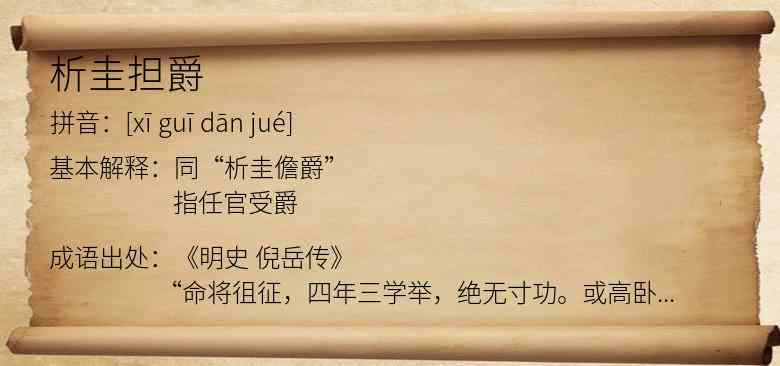 析圭担爵
拼音：[xī guī dān jué]
基本解释：同“析圭儋爵”
指任官受爵
成语出处：《明史 倪岳传》
“命将徂征，四年三学举，绝无寸功。或高卧...